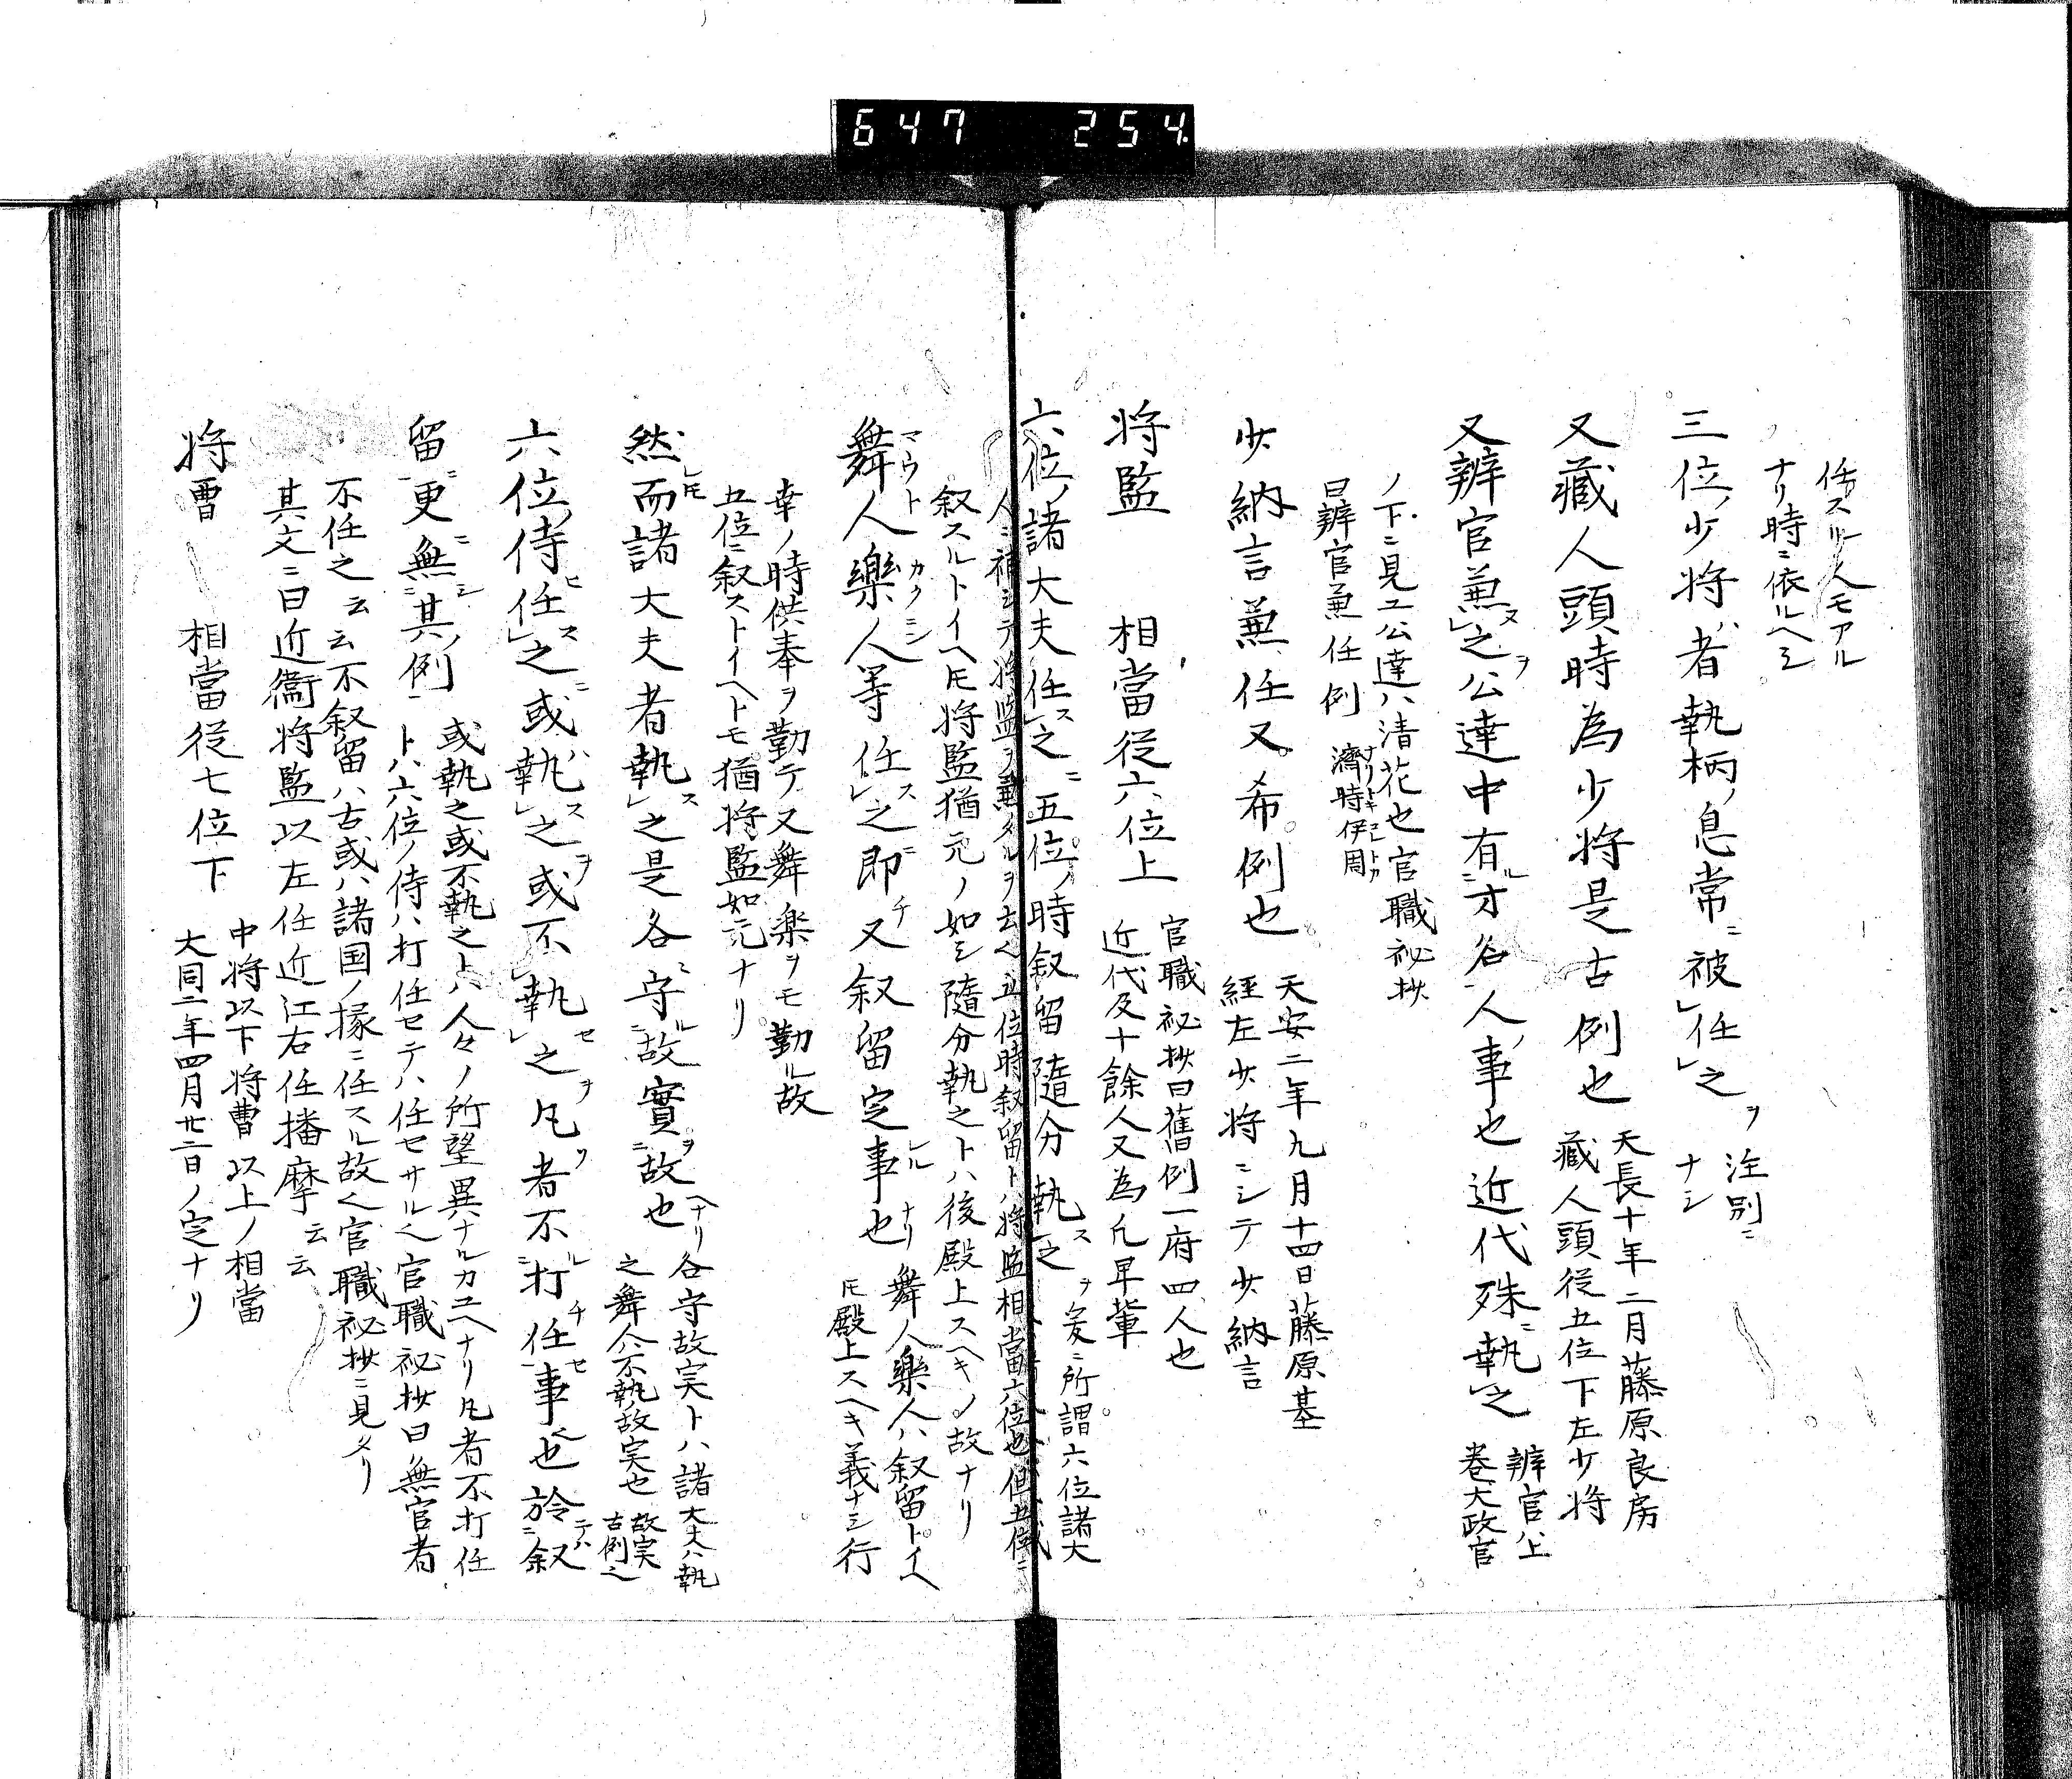 647 254
任スル人モアル
ナリ時ニ依ルヘシ
三位ノ少将者執柄ノ息常ニ被任之ヲ 注別ニ
ナシ
又蔵人頭時為少将是古例也 天長十年二月藤原良房
蔵人頭従五位下左少将
又辨官兼之ヲ公達中有才名人ノ事也近代殊ニ執之 辨官ハ上
巻大政官
ノ下ニ見ユ公達ハ清花也官職祕抄
曰辨官兼任例 済時伊周
少納言兼任又希例也 天安二年九月十四日藤原基
経左少将ニシテ少納言
将監 相當従六位上 官職祕抄曰舊例一府四人也
近代及十餘人又為凡卑輩
六位ノ諸大夫任之ニ五位ノ時叙留隨分執之ヲ 爰ニ所謂六位諸大
人ニ補シテ将監ヲ兼タルヲ云く五位時叙留トハ将監相當六位也但五位ニ
叙スルトイヘ𪜈将監猶元ノ如シ隨分執之トハ後殿上スヘキノ故ナリ
舞人樂人等任之ニ即チ又叙留定レル事也 ナリ舞人樂人ハ叙留トイヘ
𪜈殿上スヘキ義ナシ行
幸ノ時供奉ヲ勤テ又舞楽ヲモ勤ル故
五位ニ叙ストイヘトモ猶将監如元ナリ
然レ𪜈而諸大夫者執之是各守故實ヲ故也 ヘナリ各守故実トハ諸大夫ハ執
之舞人不執故実也 故実
古例之
六位ノ侍任之ニ或ハ執之ヲ或不執之ヲ凡ソ者不打チ任セ事也於テハ叙
留ニ更ニ無シ其ノ例 或執之或不執之トハ人々ノ所望異ナルカユヘナリ凡者不打任
トハ六位ノ侍ハ打任セテハ任セサルく官職祕抄曰無官者
不任之云云不叙留ハ古或ハ諸国ノ掾ニ任スル故く官職祕抄ニ見タリ
其文ニ曰近衛将監以左任近江右任播摩云云
将曹 相當従七位下 中将以下将曹以上ノ相當
大同二年四月廿二日ノ定ナリ